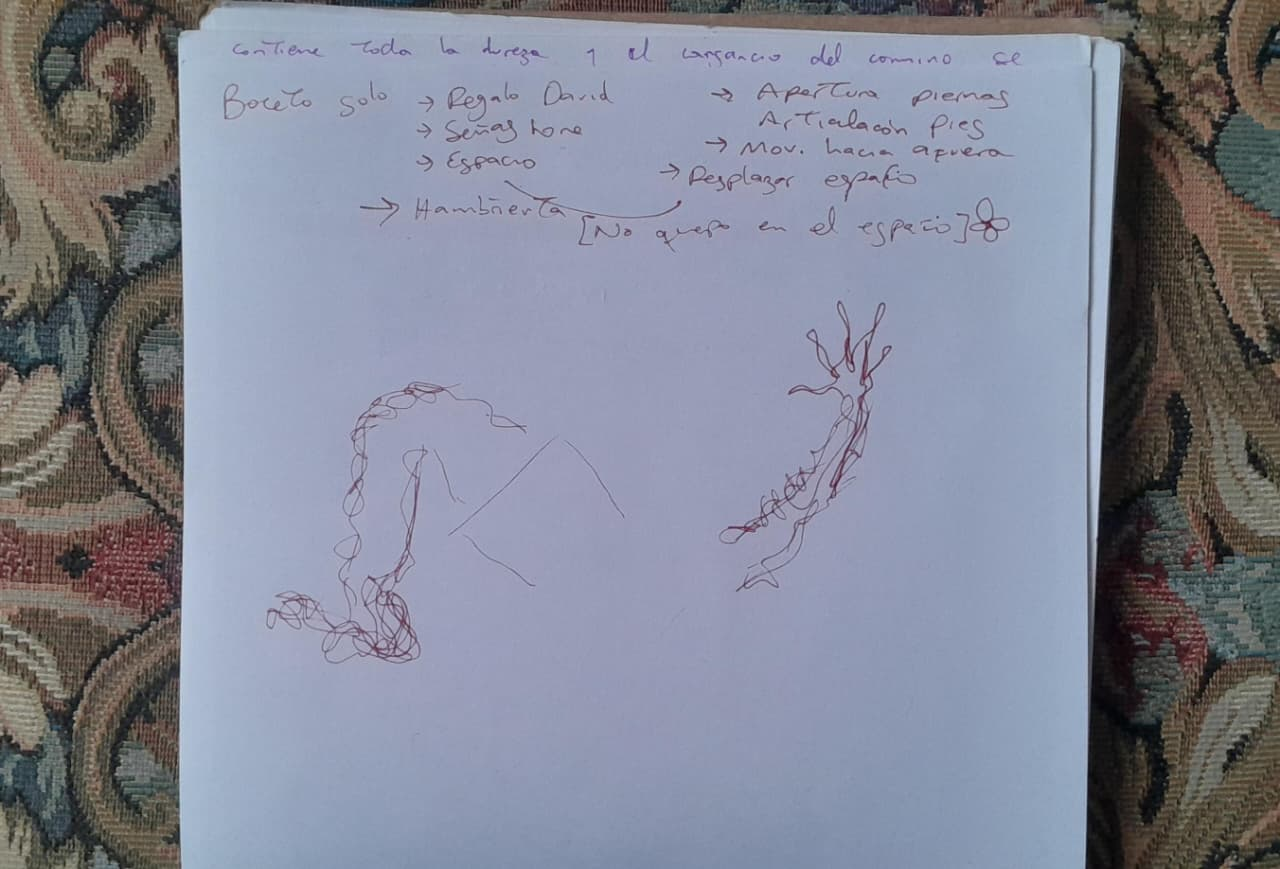 contiene toda la dureza y el cansancio del camino se
Boceto solo → Regalo David
→ Señas
→ Espacio
→ Hambrienta
→ Apertura piernas
Articulación pies
→ Mov. hacia afuera
→ Desplazar espacio
[No quepo en el espacio]